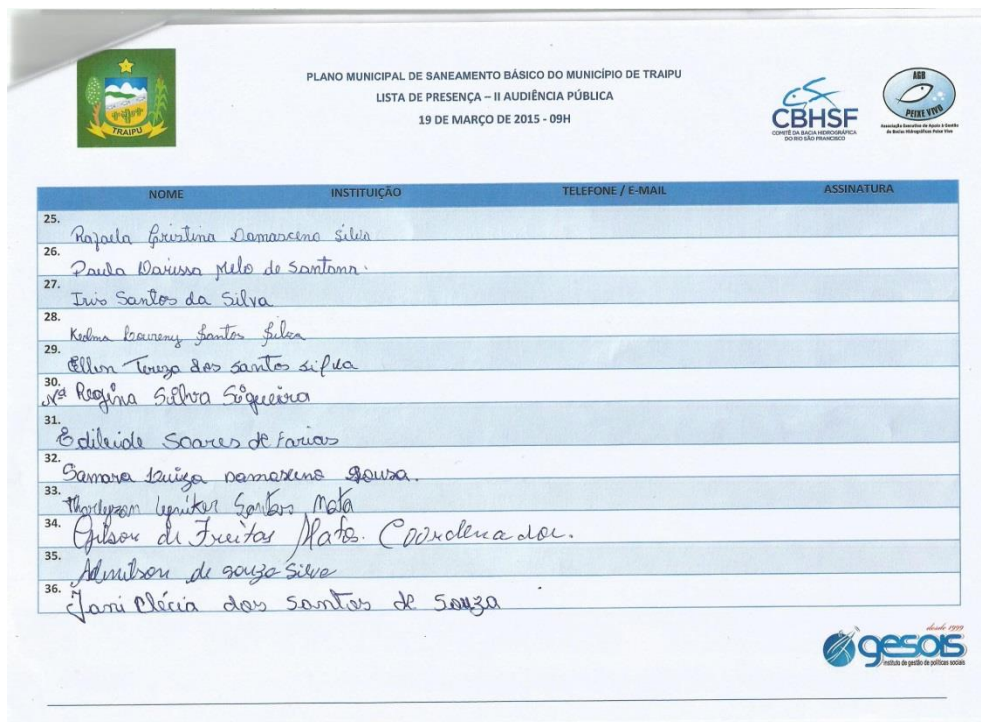 PLANO MUNICIPAL DE SANEAMENTO BÁSICO DO MUNICÍPIO DE TRAIPU
LISTA DE PRESENÇA – II AUDIÊNCIA PÚBLICA
19 DE MARÇO DE 2015 - 09H
TRAIPU
CBHSF
COMITÊ DA BACIA HIDROGRÁFICA
DO RIO SÃO FRANCISCO
AGB
PEIXE VIVO
Associação Executiva de Apoio à Gestão
de Bacias Hidrográficas Peixe Vivo
NOME INSTITUIÇÃO TELEFONE / E-MAIL ASSINATURA
25. Rafaela Cristina Damasceno Silva
26. Paula Larissa Melo de Santana.
27. Iris Santos da Silva
28. Kedma Santos Silva
29. Ellen Tereza dos santos silva
30. Mª Regina Silva Siqueira
31. Edileide Soares de Farias
32. Samara Luiza Damasceno Sousa.
33. Santos Mata
34. Gilson de Freitas Matos. Coordenador.
35. Admilson de souza Silva
36. Jani Clécia dos Santos de Souza
desde 1999
gesois
instituto de gestão de políticas sociais